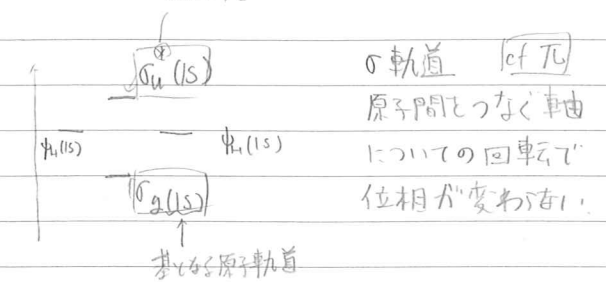 σu*(1S)
ψH(1S)
ψH(1S)
σg(1S)
基となる原子軌道
σ軌道 cf π
原子間をつなぐ軸
についての回転で
位相が変わらない.